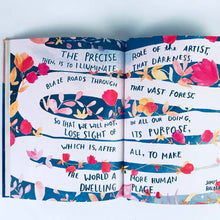 THE PRECISE ROLE OF THE ARTIST,
THEN, IS TO ILLUMINATE THAT DARKNESS,
BLAZE ROADS THROUGH THAT VAST FOREST,
SO THAT WE WILL NOT, IN ALL OUR DOING,
LOSE SIGHT OF ITS PURPOSE,
WHICH IS, AFTER ALL, TO MAKE
THE WORLD A MORE HUMAN
DWELLING PLACE.